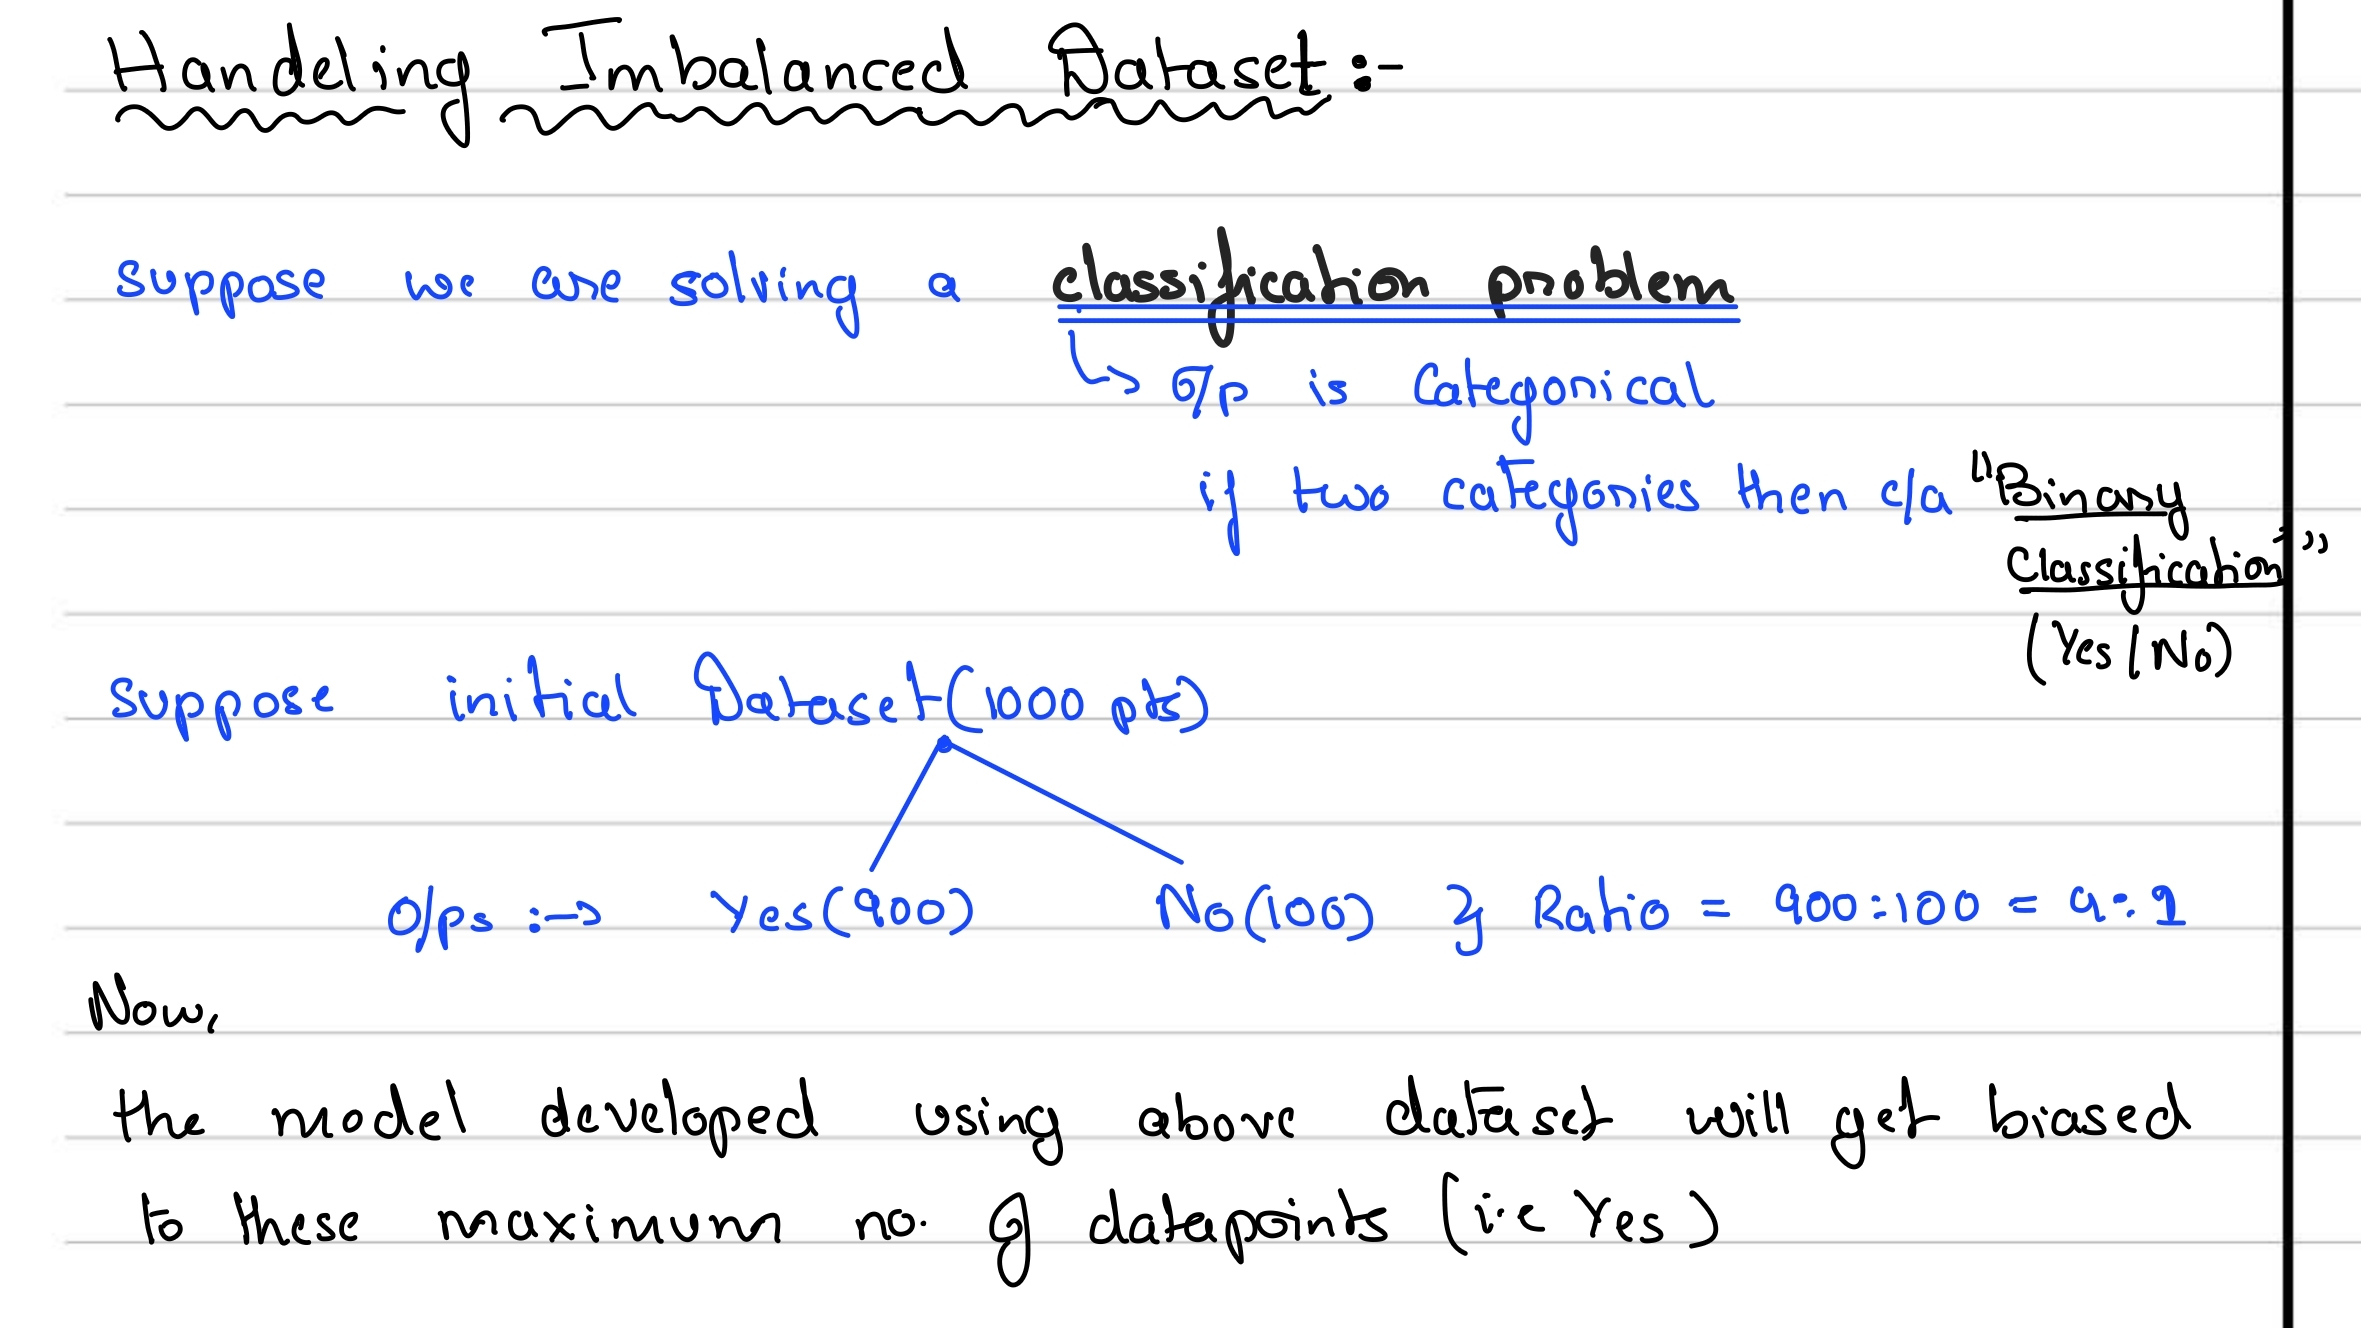 Handeling Imbalanced Dataset:-
suppose we are solving a classification problem
↳ O/p is Categorical
if two categories then c/a "Binary
Classification"
(Yes/No)
suppose initial Dataset (1000 pts)
O/ps :→ Yes(900) No(100) } Ratio = 900:100 = 9:1
Now,
the model developed using above dataset will get biased
to these maximum no. of datapoints (i.e Yes)